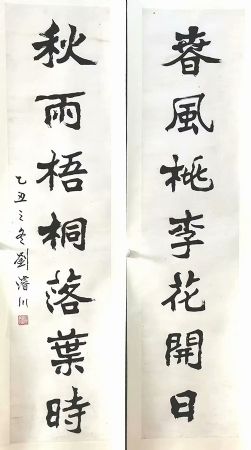 春風桃李花開日
秋雨梧桐落葉時
乙丑之冬劉濬川